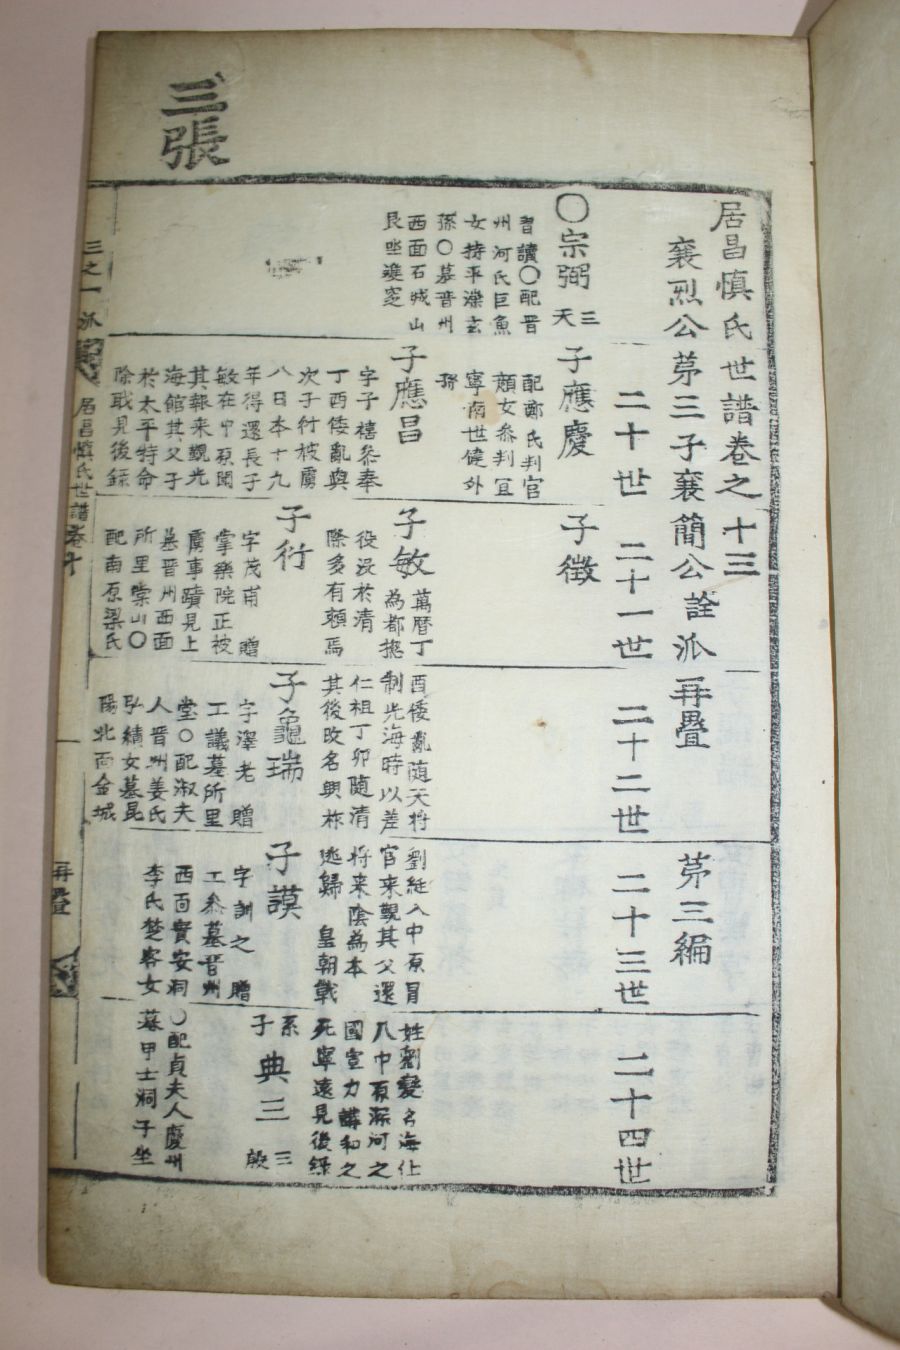 三張
居昌愼氏世譜卷之十三
襄烈公苐三子襄簡公詮派再疊
苐三編
二十世
二十一世
二十二世
二十三世
二十四世
〇宗弼
三
天
習讀〇配晋
州河氏巨魚
女持平濼玄
孫〇墓晋州
西面石城山
艮坐雙窆
子應慶
配鄭氏判官
頍女叅判宜
寧南世健外
孫
子應昌
字子禧叅奉
丁酉倭亂與
次子衍被虜
入日本十九
年得還長子
敏在中原聞
其報来觀光
海館其父子
於太平特命
除戢見後錄
子徵
子敏
萬曆丁
爲都摠
役没於清
際多有頼焉
子衍
字茂甫 贈
掌樂院正被
虜事蹟見上
墓晋州西面
所里棠山〇
配南原梁氏
酉倭亂随天将
制光海時以差
仁祖丁卯随清
其後改名興祚
子龜瑞
字澤老 贈
工議墓所里
堂〇配淑夫
人晋州姜氏
弘績女墓昆
陽北面金城
劉綎入中原冒
官来覲其父還
将来陰為本
逃歸 皇朝戰
子謨
字訓之 贈
工叅墓晋州
西面實安洞
李氏楚客女
姓劉變名海仕
入中原深河之
國宣力講和之
死寧遠見後錄
系
子
典三
三
殷
〇配貞夫人慶州
墓甲士洞子坐
三之一派
居昌愼氏世譜卷十
一
再疊